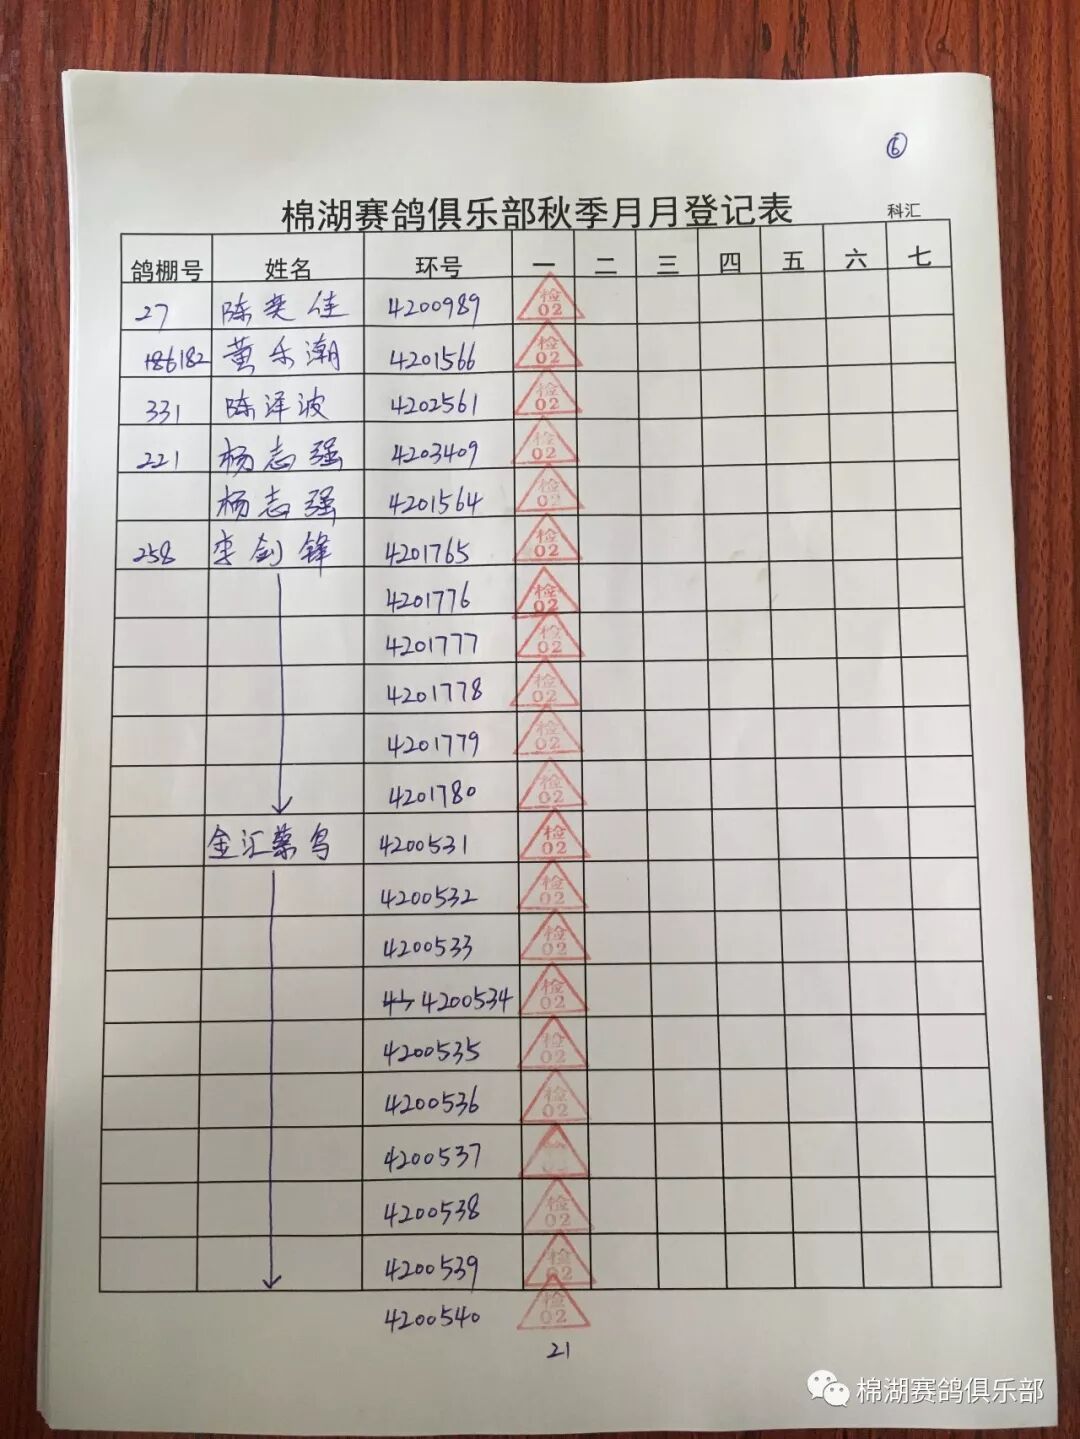 ⑥
棉湖赛鸽俱乐部秋季月月登记表 科汇
鸽棚号 姓名 环号 一 二 三 四 五 六 七
27 陈奕佳 4200989 检02
186182 黄乐潮 4201566 检02
331 陈泽波 4202561 检02
221 杨志强 4203409 检02
杨志强 4201564 检02
258 李剑锋 4201765 检02
4201776 检02
4201777 检02
4201778 检02
4201779 检02
4201780 检02
金汇菜鸟 4200531 检02
4200532 检02
4200533 检02
4200534 检02
4200535 检02
4200536 检02
4200537
4200538 检02
4200539 检02
4200540 检02
21
棉湖赛鸽俱乐部